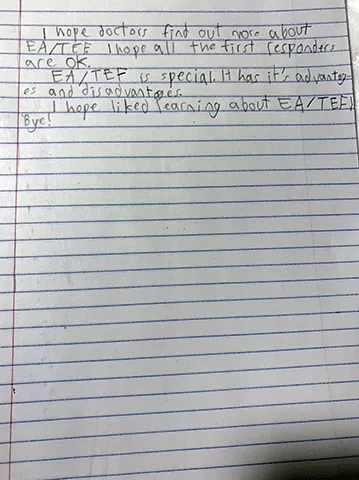 I hope doctors find out more about
EA/TEF I hope all the first responders
are OK.
EA/TEF is special. It has it's advantag-
es and disadvantages.
I hope liked learning about EA/TEF!
Bye!